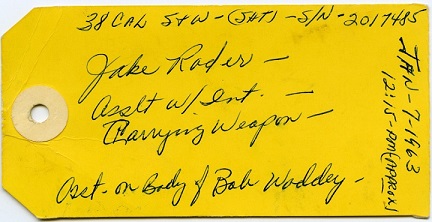 38 CAL S+W - (SHT) - S/N - 2017485
Jake Rader -
Asslt w/ Int. -
Carrying Weapon -
Asst. on Body of Bob Waddey -
JAN - 7 - 1963
12:15 - PM (APPROX)